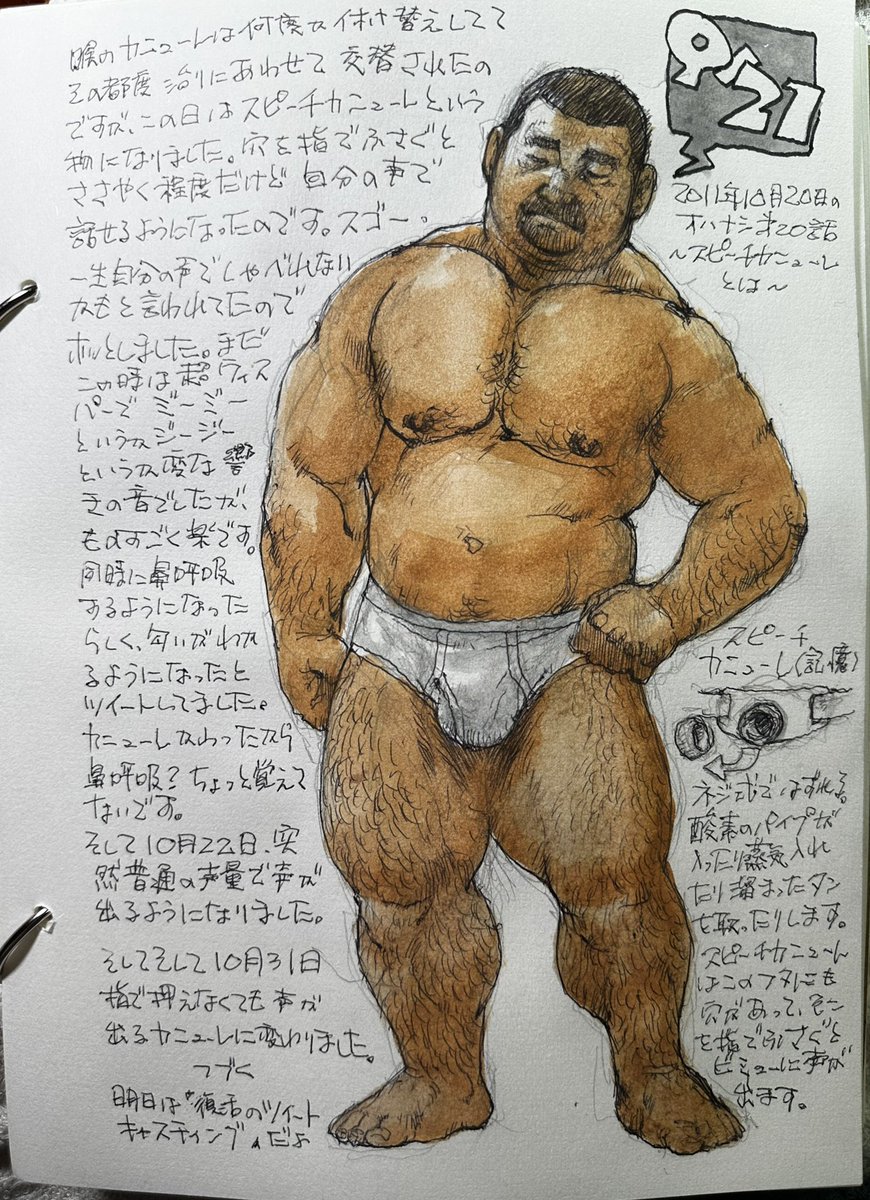 喉のカニューレは何度か付け替えしてて
その都度治りにあわせて交替されたの
ですが、この日はスピーチカニューレという
物になりました。穴を指でふさぐと
ささやく程度だけど自分の声で
話せるようになったのです。スゴー。
一生自分の声でしゃべれない
かもと言われてたので
ホッとしました。まだ
この時は超ウィス
パーでミーミー
というかジージー
というか変な響
きの音でしたが、
ものすごく楽です。
同時に鼻呼吸
するようになった
らしく、匂いがわか
るようになったと
ツイートしてました。
カニューレかわったから
鼻呼吸？ちょっと覚えて
ないです。
そして10月22日、突
然普通の声量で声が
出るようになりました。
そしてそして10月31日
指で押えなくても声が
出るカニューレに変わりました。
つづく
明日は"復活のツイート
キャスティング"だよ
9/21
2011年10月20日の
オハナシ才20話
〜スピーチカニューレ
とは〜
スピーチ
カニューレ(記憶)
ネジ式ではずれる
酸素のパイプが
入ったり蒸気入れ
たり溜まったタン
を取ったりします。
スピーチカニューレ
はこのフタにも
穴があって、そこ
を指でふさぐと
ビミョーに声が
出ます。